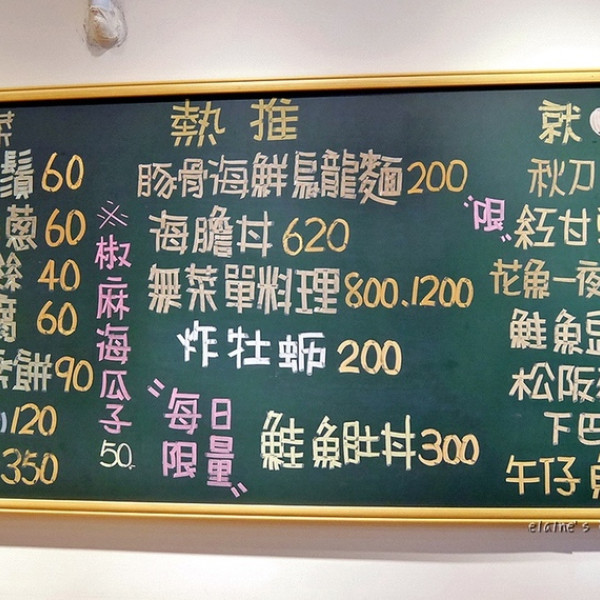 菜
鬚60
蔥60
絲 40
腐 60
餅90
120
350
※椒麻海瓜子
50.
熱推
豚骨海鮮烏龍麵200
海膽丼620
無菜單料理800、1200
炸牡蠣200
"每日
限量"
鮭魚肚丼300
就
秋刀
"限"
紅甘
花魚一夜
鮭魚
松阪
下巴
午仔魚
elaine's